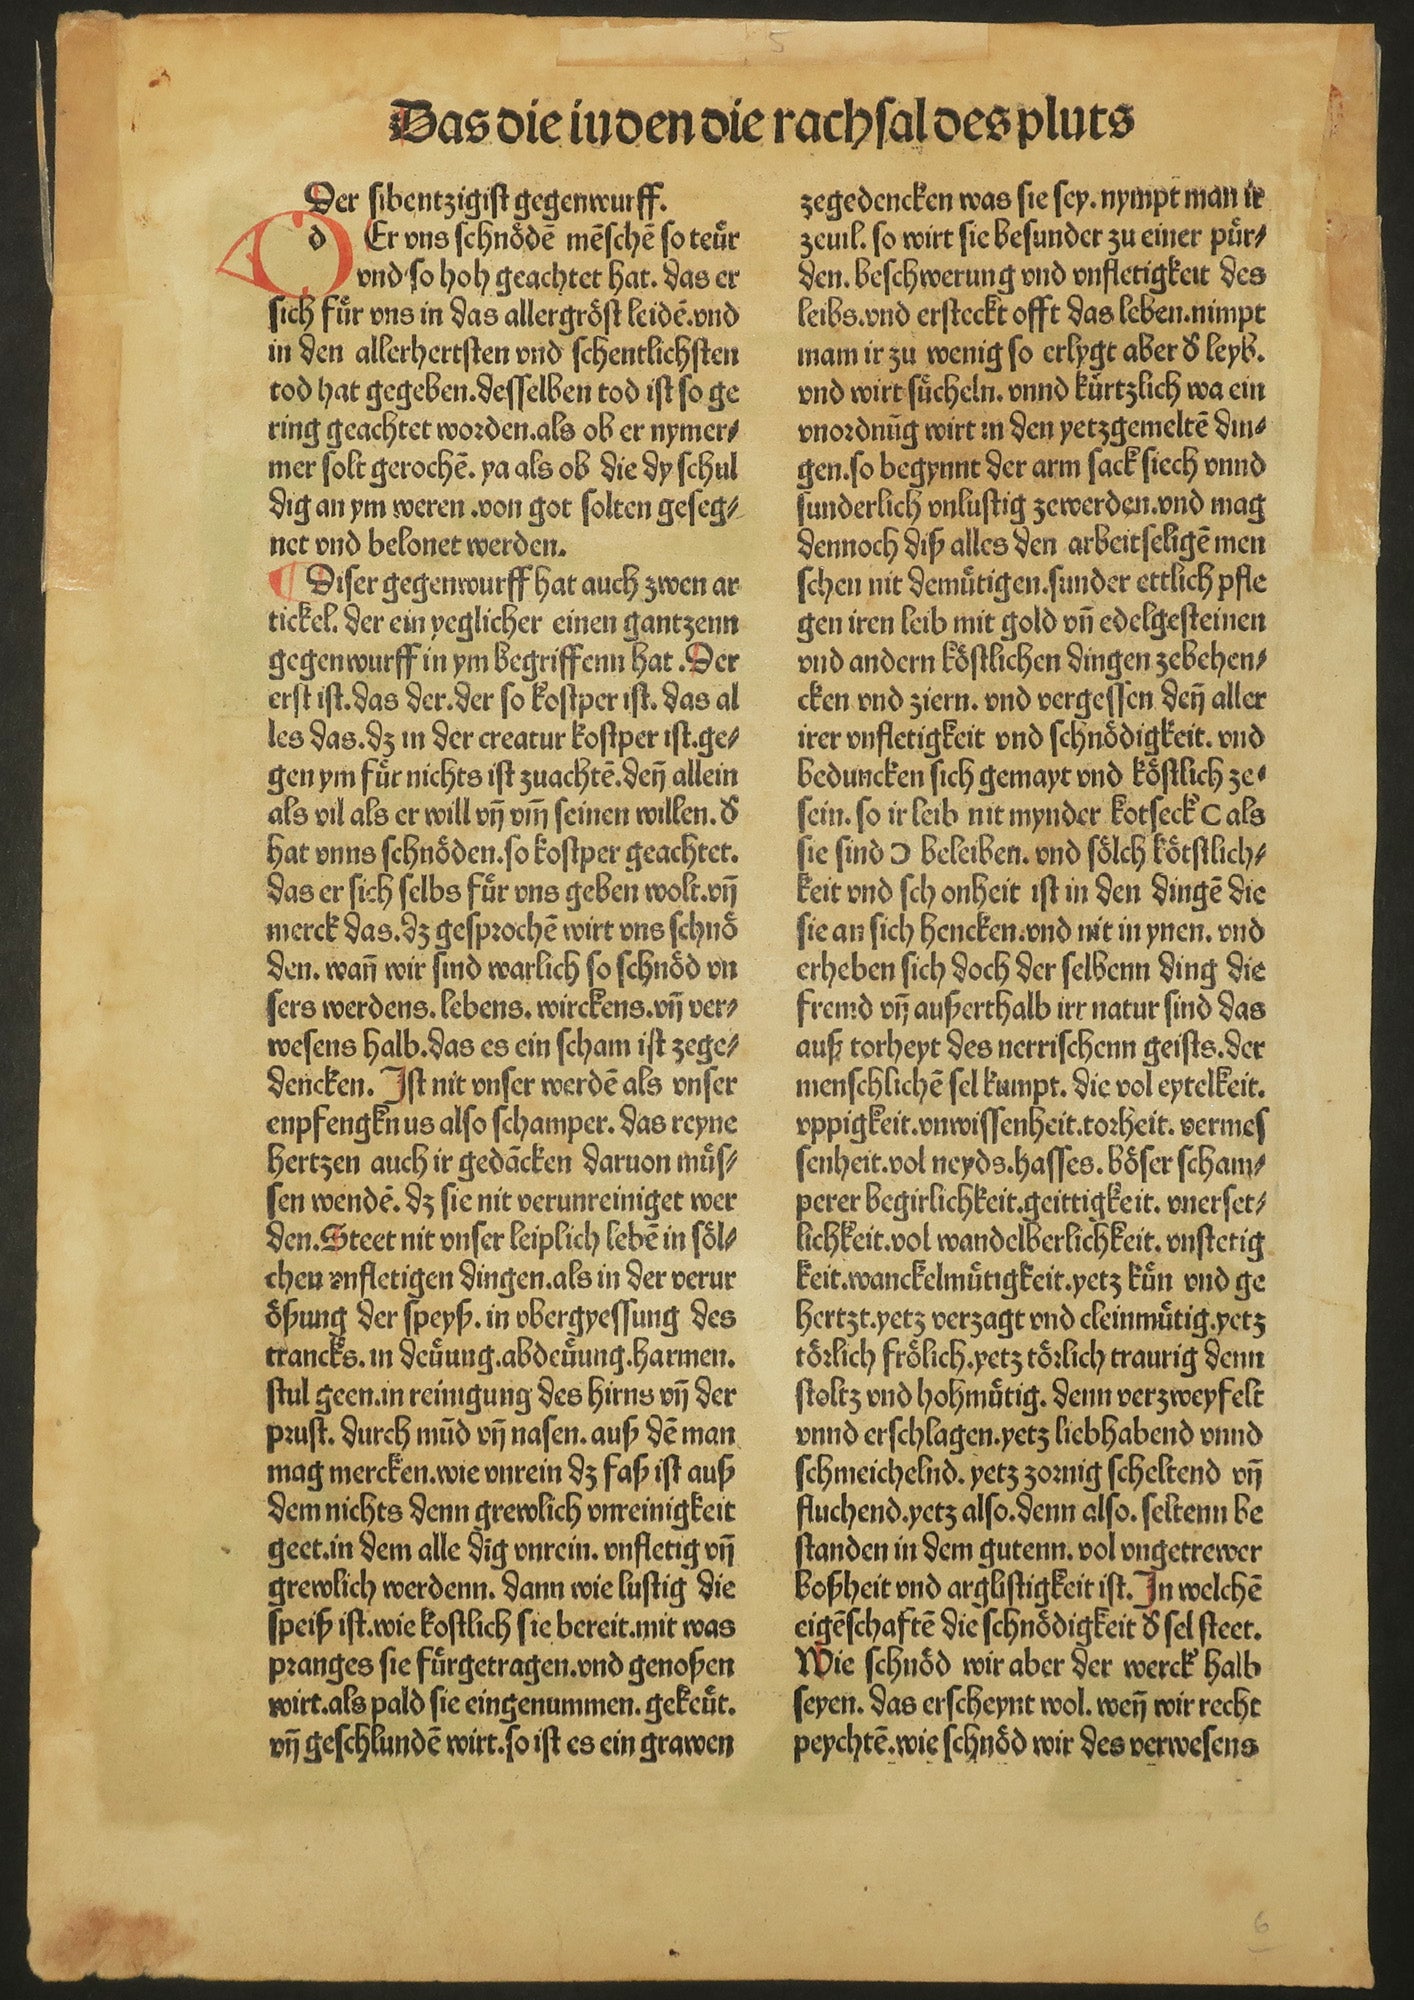 Das die iuden die rach sal des pluts
Der sibentzigist gegenwurff.
d Er vns schnödē mēschē so teür
vnd so hoh geachtet hat. das er
sich für vns in das allergröst leidē.vnd
in den allerhertsten vnd schentlichsten
tod hat gegeben.desselben tod ist so ge
ring geachtet worden.als ob er nymer⸗
mer solt gerochē. ya als ob die dy schul
dig an ym weren .von got solten geseg⸗
net vnd belonet werden.
¶ Diser gegenwurff hat auch zwen ar
tickel. der ein yeglicher einen gantzenn
gegenwurff in ym begriffenn hat .Der
erst ist.das der.der so kostper ist. das al
les das.dz in der creatur kostper ist.ge⸗
gen ym für nichts ist zuachtē.deñ allein
als vil als er will vñ vm̃ seinen willen. d̕
hat vnns schnöden.so kostper geachtet.
das er sich selbs für vns geben wolt.vñ
merck das.dz gesprochē wirt vns schnö
den. wañ wir sind warlich so schnöd vn
sers werdens. lebens. wirckens.vñ ver⸗
wesens halb.das es ein scham ist zege⸗
dencken. Ist nit vnser werdē als vnser
enpfengknus also schamper. das reyne
hertzen auch ir gedācken daruon müs⸗
sen wendē. dz sie nit verunreiniget wer
den.Steet nit vnser leiplich lebē in söl⸗
chen vnfletigen dingen.als in der verur
ößung der speyß. in vbergyessung des
trancks. in deüung.abdeüung.harmen.
stul geen.in reinigung des hirns vñ der
prust. durch mūd vñ nasen. auß dē man
mag mercken.wie vnrein dz faß ist auß
dem nichts denn grewlich vnreinigkeit
geet.in dem alle dīg vnrein. vnfletig vñ
grewlich werdenn. dann wie lustig die
speiß ist.wie kostlich sie bereit.mit was
pranges sie fürgetragen.vnd genoßen
wirt.als pald sie eingenummen. gekeüt.
vñ geschlundē wirt.so ist es ein grawen
zegedencken was sie sey. nympt man ir
zeuil. so wirt sie besunder zu einer pür⸗
den. beschwerung vnd vnfletigkeit des
leibs.vnd ersteckt offt das leben.nimpt
mam ir zu wenig so erlygt aber d̕ leyb.
vnd wirt sücheln. vnnd kürtzlich wa ein
vnordnūg wirt in den yetzgemeltē din⸗
gen.so begynnt der arm sack siech vnnd
sunderlich vnlustig zewerden.vnd mag
dennoch diß alles den arbeitseligē men
schen nit demütigen.sunder ettlich pfle
gen iren leib mit gold vñ edelgesteinen
vnd andern köstlichen dingen zebehen⸗
cken vnd ziern. vnd vergessen deñ aller
irer vnfletigkeit vnd schnödigkeit. vnd
beduncken sich gemayt vnd köstlich ze⸗
sein. so ir leib nit mynder kotseck C als
sie sind Ɔ beleiben. vnd sölch kötstlich⸗
keit vnd sch onheit ist in den dingē die
sie an sich hencken.vnd nit in ynen. vnd
erheben sich doch der selbenn ding die
fremd vñ außerthalb irr natur sind das
auß torheyt des nerrischenn geists.der
menschlichē sel kumpt. die vol eytelkeit.
vppigkeit.vnwissenheit.torheit. vermes
senheit.vol neyds.hasses. böser scham⸗
perer begirlichkeit.geittigkeit. vnerset⸗
lichkeit.vol wandelberlichkeit. vnstetig
keit.wanckelmütigkeit.yetz kün vnd ge
hertzt.yetz verzagt vnd cleinmütig.yetz
törlich frölich.yetz törlich traurig denn
stoltz vnd hohmütig. denn verzweyfelt
vnnd erschlagen.yetz liebhabend vnnd
schmeichelnd. yetz zornig scheltend vñ
fluchend.yetz also.denn also. seltenn be
standen in dem gutenn. vol vngetrewer
boßheit vnd arglistigkeit ist. In welchē
eigēschaftē die schnödigkeit d̕ sel steet.
Wie schnöd wir aber der werck halb
seyen. das erscheynt wol. weñ wir recht
peychtē.wie schnöd wir des verwesens
6